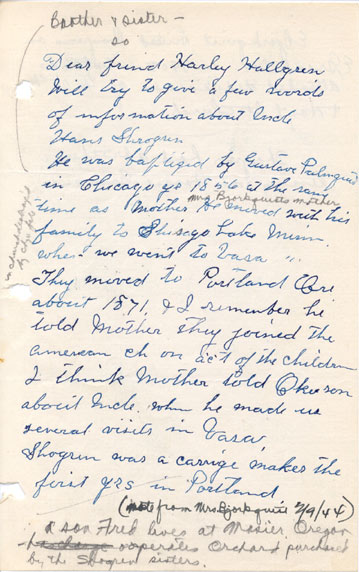 Brother & sister -
so
Dear friend Harley Hallgren
Will try to give a few words
of information about Uncle
Hans Shogren
He was baptized by Gustave Palmquist
in Chicago yr 1856 at the same
Mrs Bjorkquists mother
time as Mother. He moved with his
family to Chisago Lake Minn.
when we went to Vasa "
They moved to Portland Ore
about 1871, & I remember he
told Mother they joined the
american ch on act of the children
I think Mother told Okerson
about Uncle, when he made us
several visits in Vasa,
Shogren was a carrige maker the
first yrs in Portland
(note from Mrs Bjorkquist 2/9/44)
a son Fred lives at Mosier, Oregon
ooperates Orchard purchased
by the Shogren sisters.